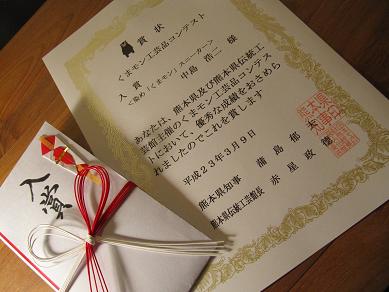 賞状
くまモン工芸品コンテスト
入賞
こ染め「くまモン」スニーカーン
中島 浩二 様
あなたは、熊本県及び熊本県伝統工
芸館主催のくまモン工芸品コンテス
トにおいて、優秀な成績をおさめら
れましたのでこれを賞します
平成23年3月9日
熊本県知事 蒲島郁夫
熊本県伝統工芸館長 赤星政徳
入賞